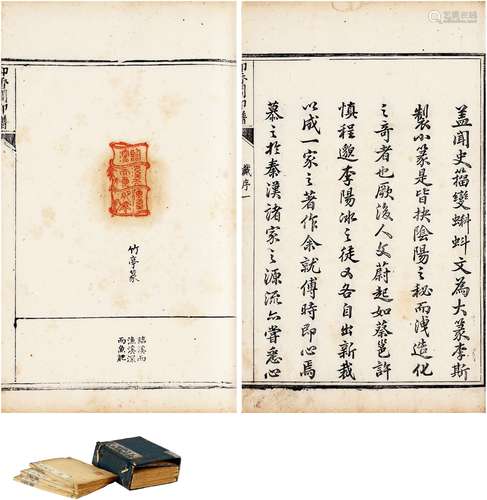 盖聞史籀變蝌蚪文為大篆李斯
製小篆是皆抉陰陽之秘而洩造化
之奇者也厥後人文蔚起如蔡邕許
慎程邈李陽冰之徒又各自出新裁
以成一家之著作余就傅時即心焉
慕之於秦漢諸家之源流亦嘗悉心
印香閣印譜
序一
竹亭篆
臨溪而
漁溪深
而魚肥
印香閣印譜